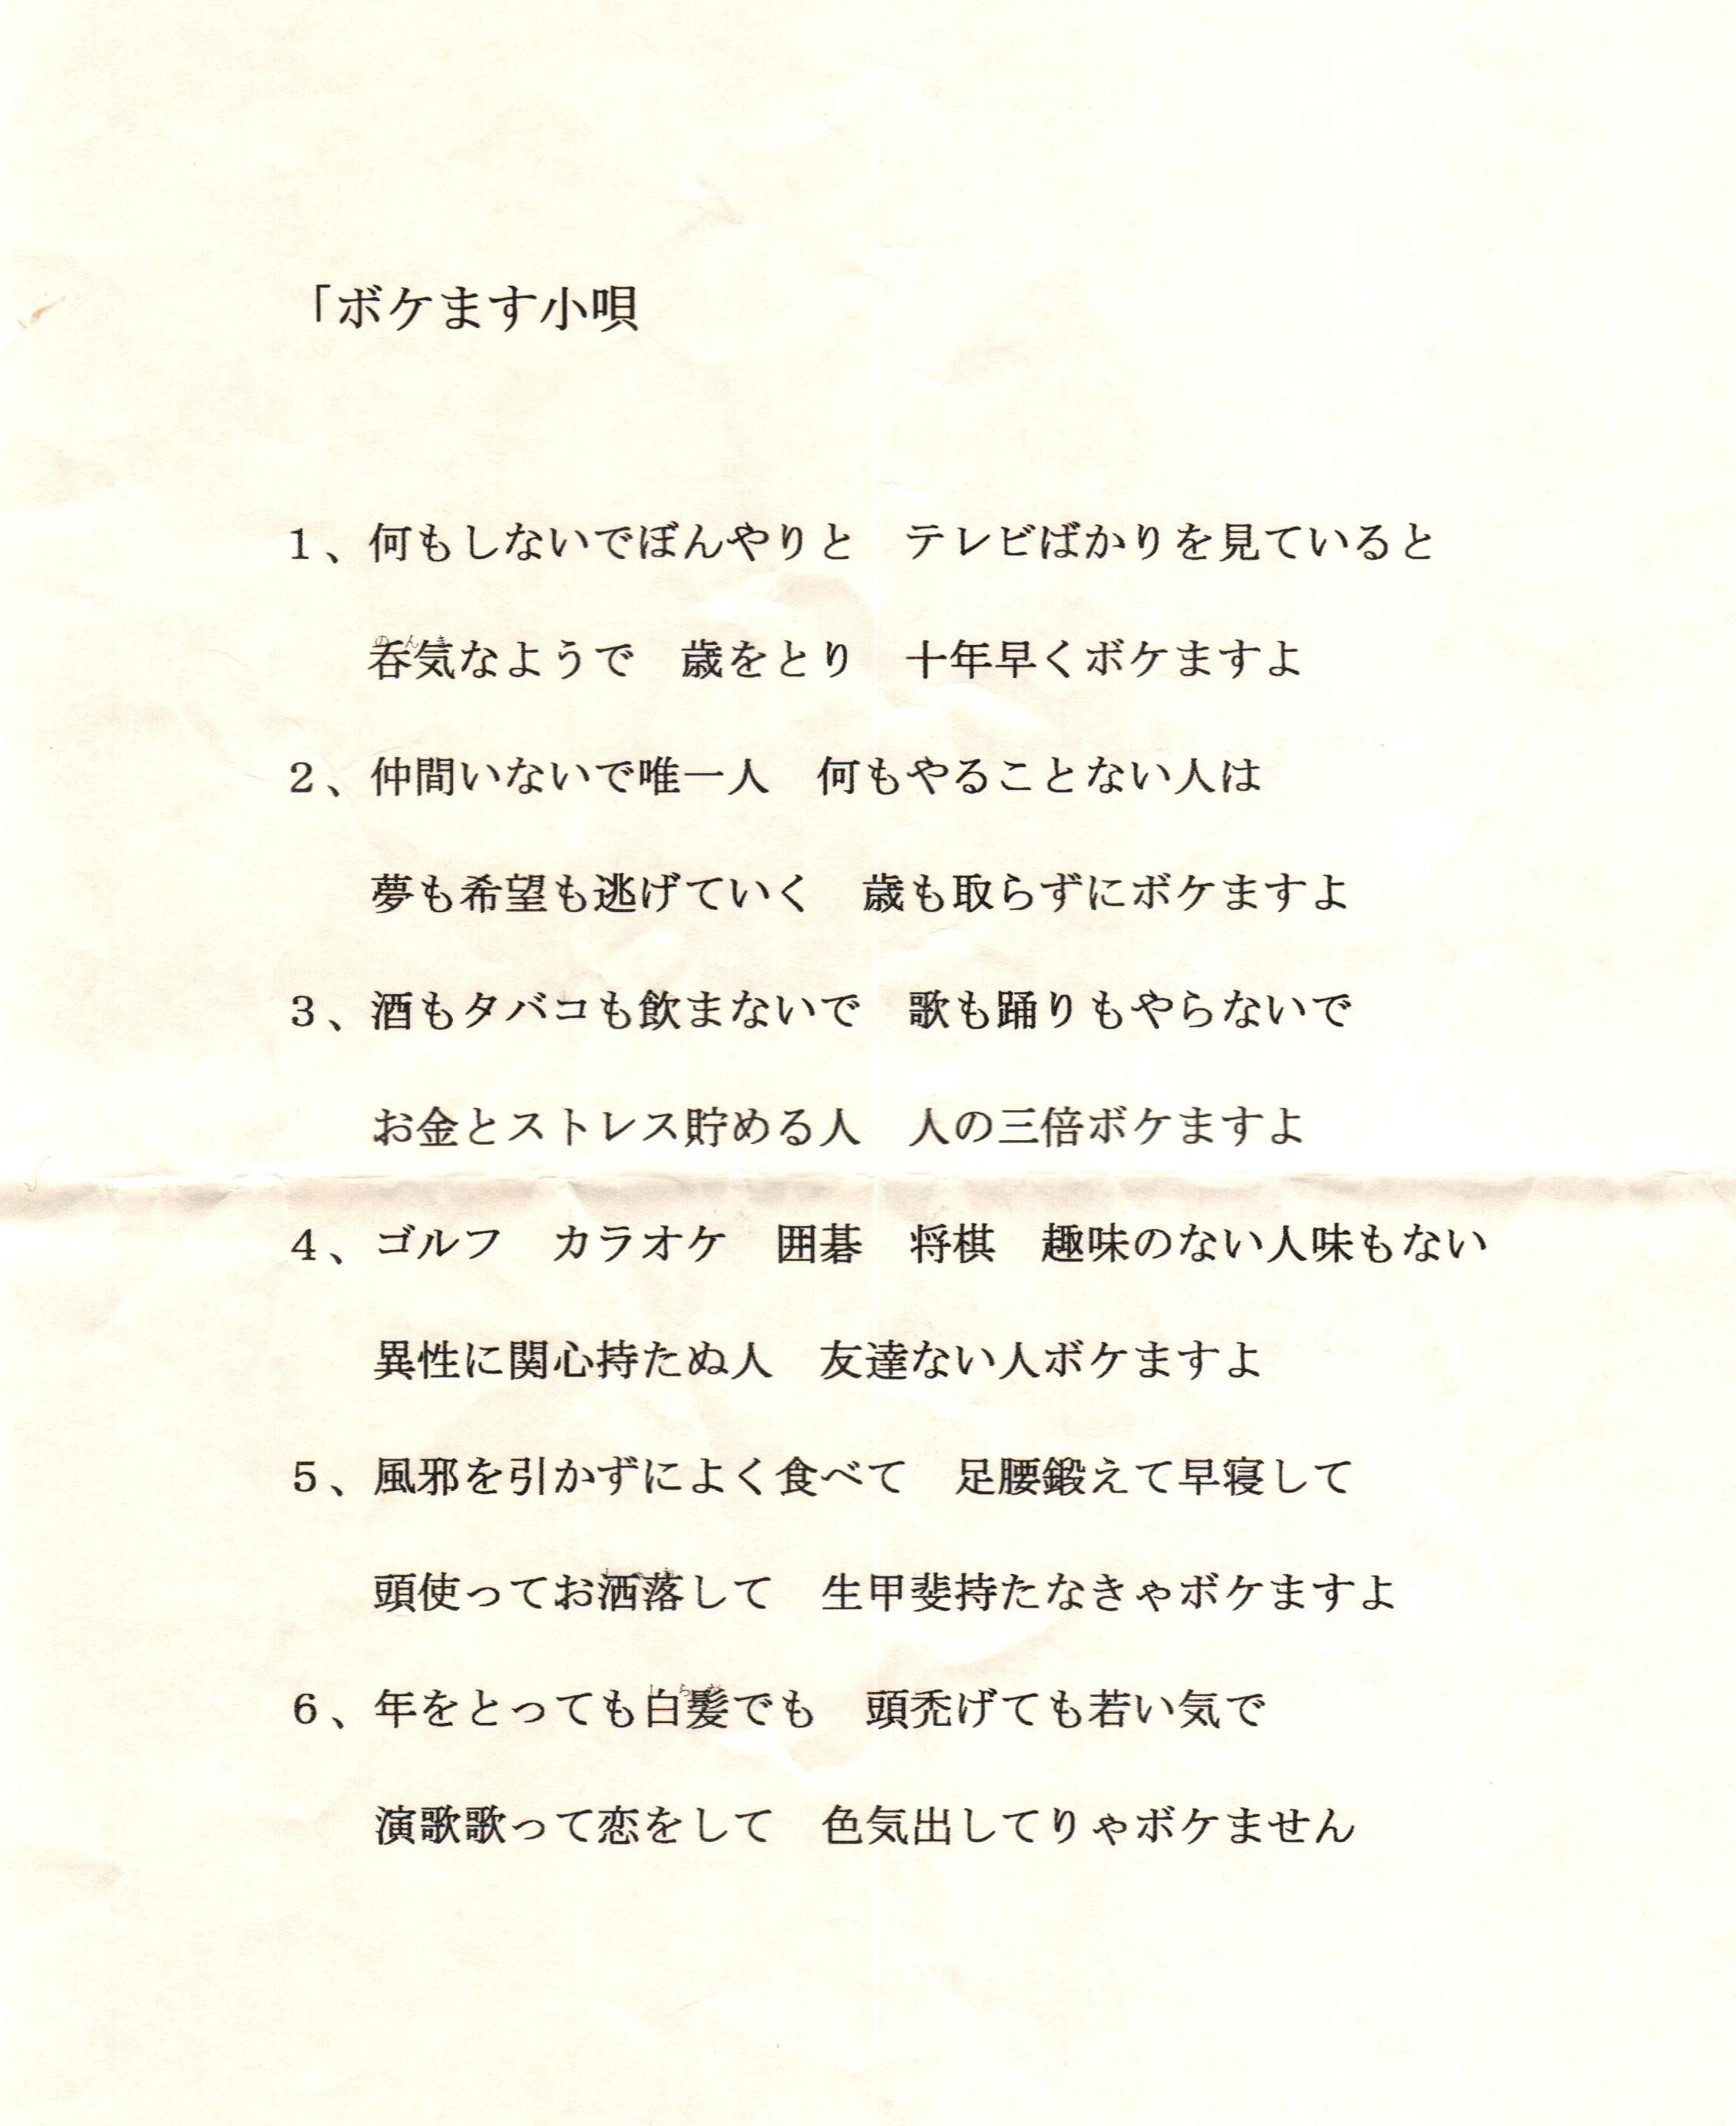 「ボケます小唄
１、何もしないでぼんやりと　テレビばかりを見ていると
呑気なようで　歳をとり　十年早くボケますよ
２、仲間いないで唯一人　何もやることない人は
夢も希望も逃げていく　歳も取らずにボケますよ
３、酒もタバコも飲まないで　歌も踊りもやらないで
お金とストレス貯める人　人の三倍ボケますよ
４、ゴルフ　カラオケ　囲碁　将棋　趣味のない人味もない
異性に関心持たぬ人　友達ない人ボケますよ
５、風邪を引かずによく食べて　足腰鍛えて早寝して
頭使ってお洒落して　生甲斐持たなきゃボケますよ
６、年をとっても白髪でも　頭禿げても若い気で
演歌歌って恋をして　色気出してりゃボケません